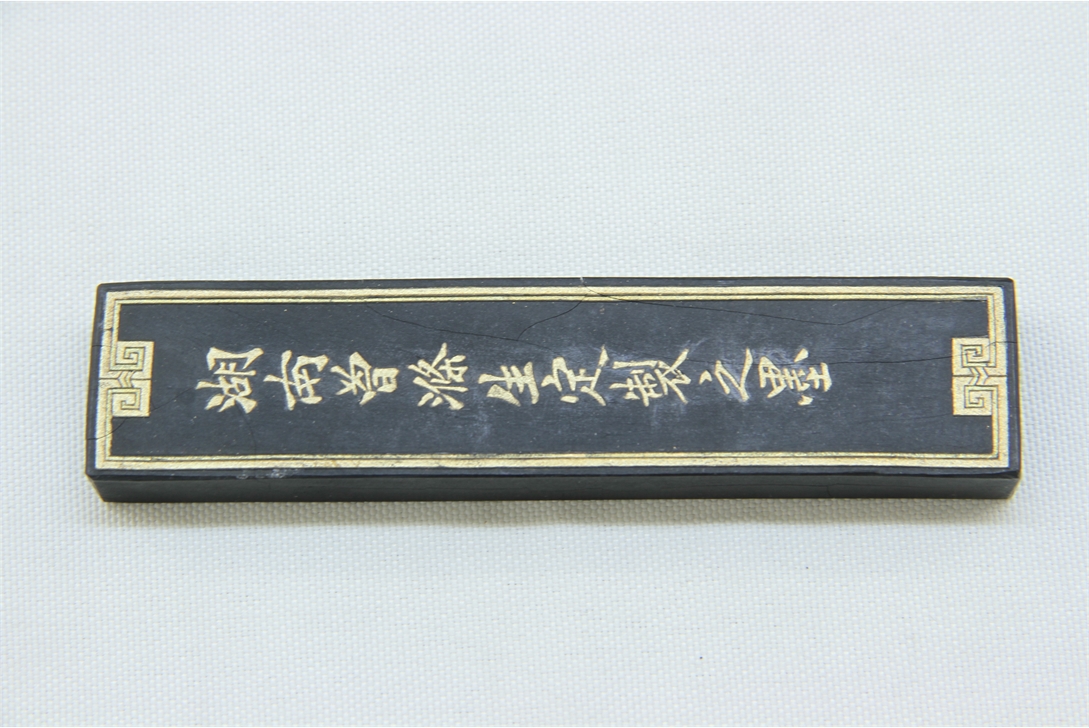 湖南曾滌生定製之墨